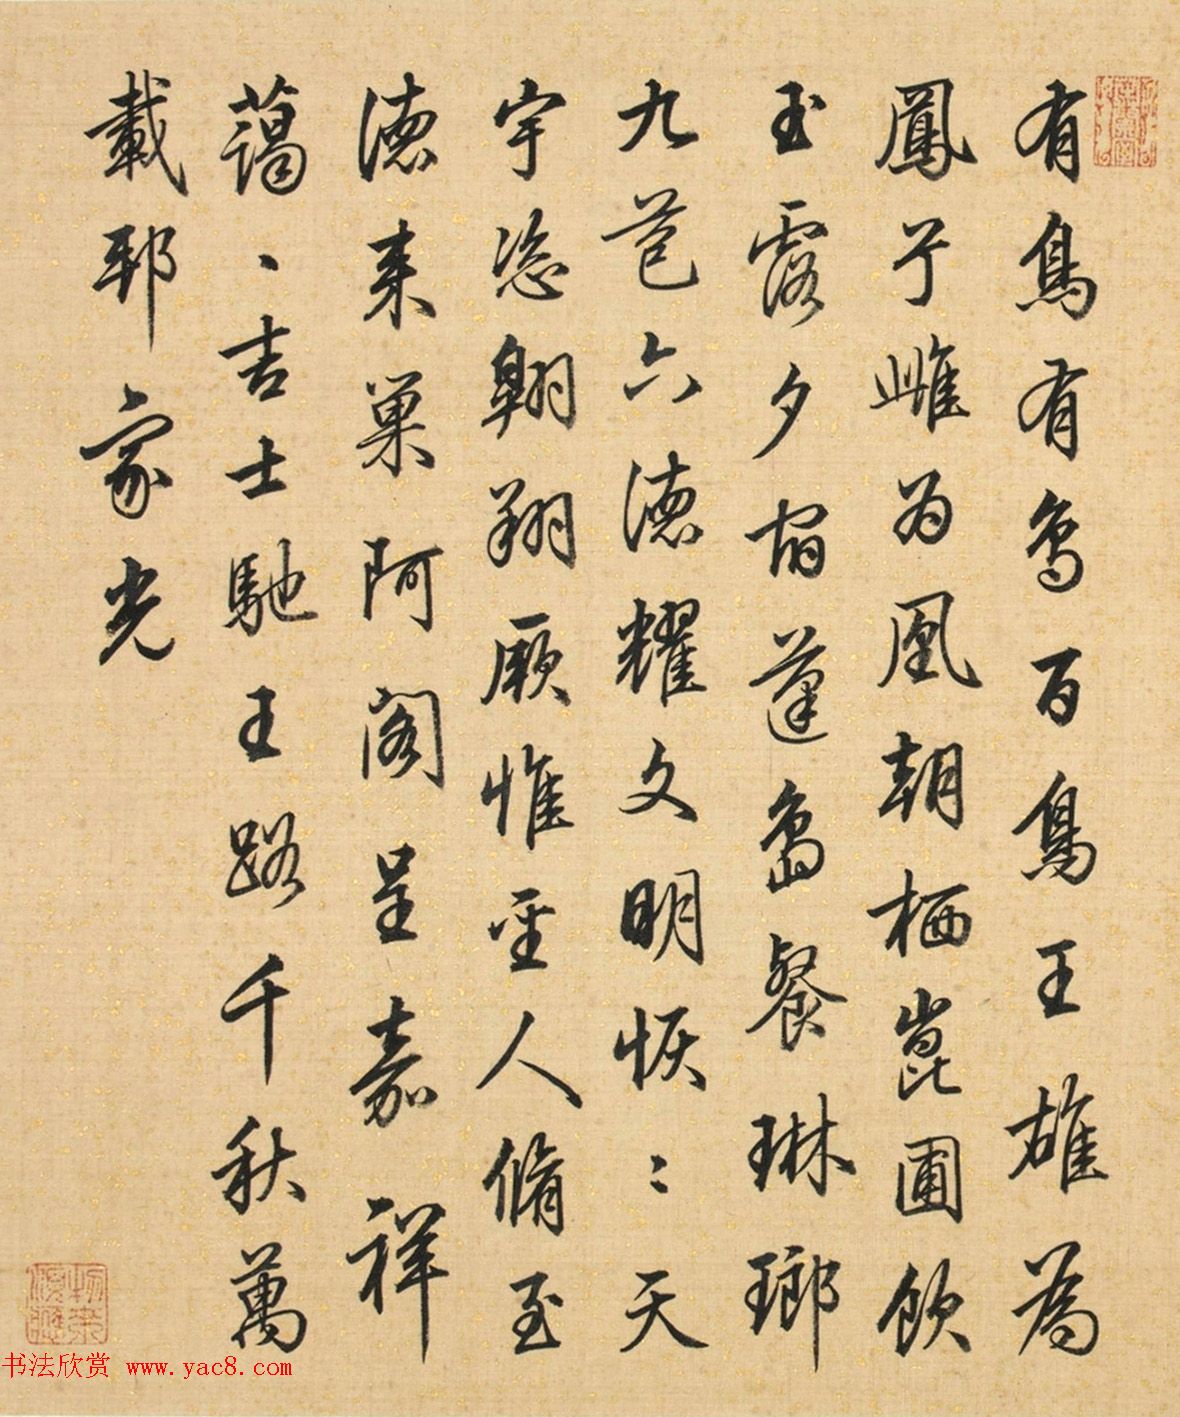 有鳥有鳥百鳥王雄為
鳳兮雌为凰朝栖崑圃飲
玉露夕宿蓬島餐琳瑯
九苞六德耀文明恢〻天
宇恣翱翔厥惟聖人脩至
德来巢阿阁呈嘉祥
藹、吉士馳王路千秋萬
載邦家光
书法欣赏 www.yac8.com